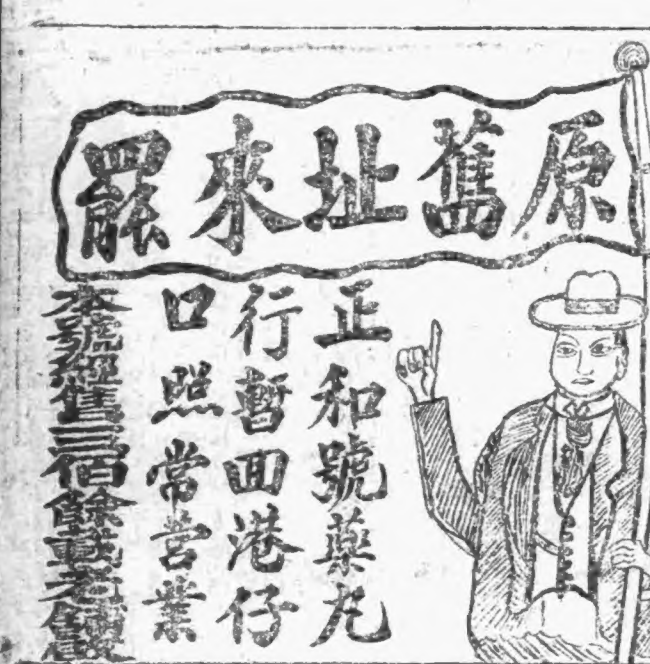 原舊址來罷
正和號藥丸
行暫回港仔
口照常营業
本號經售三佰餘載老鋪